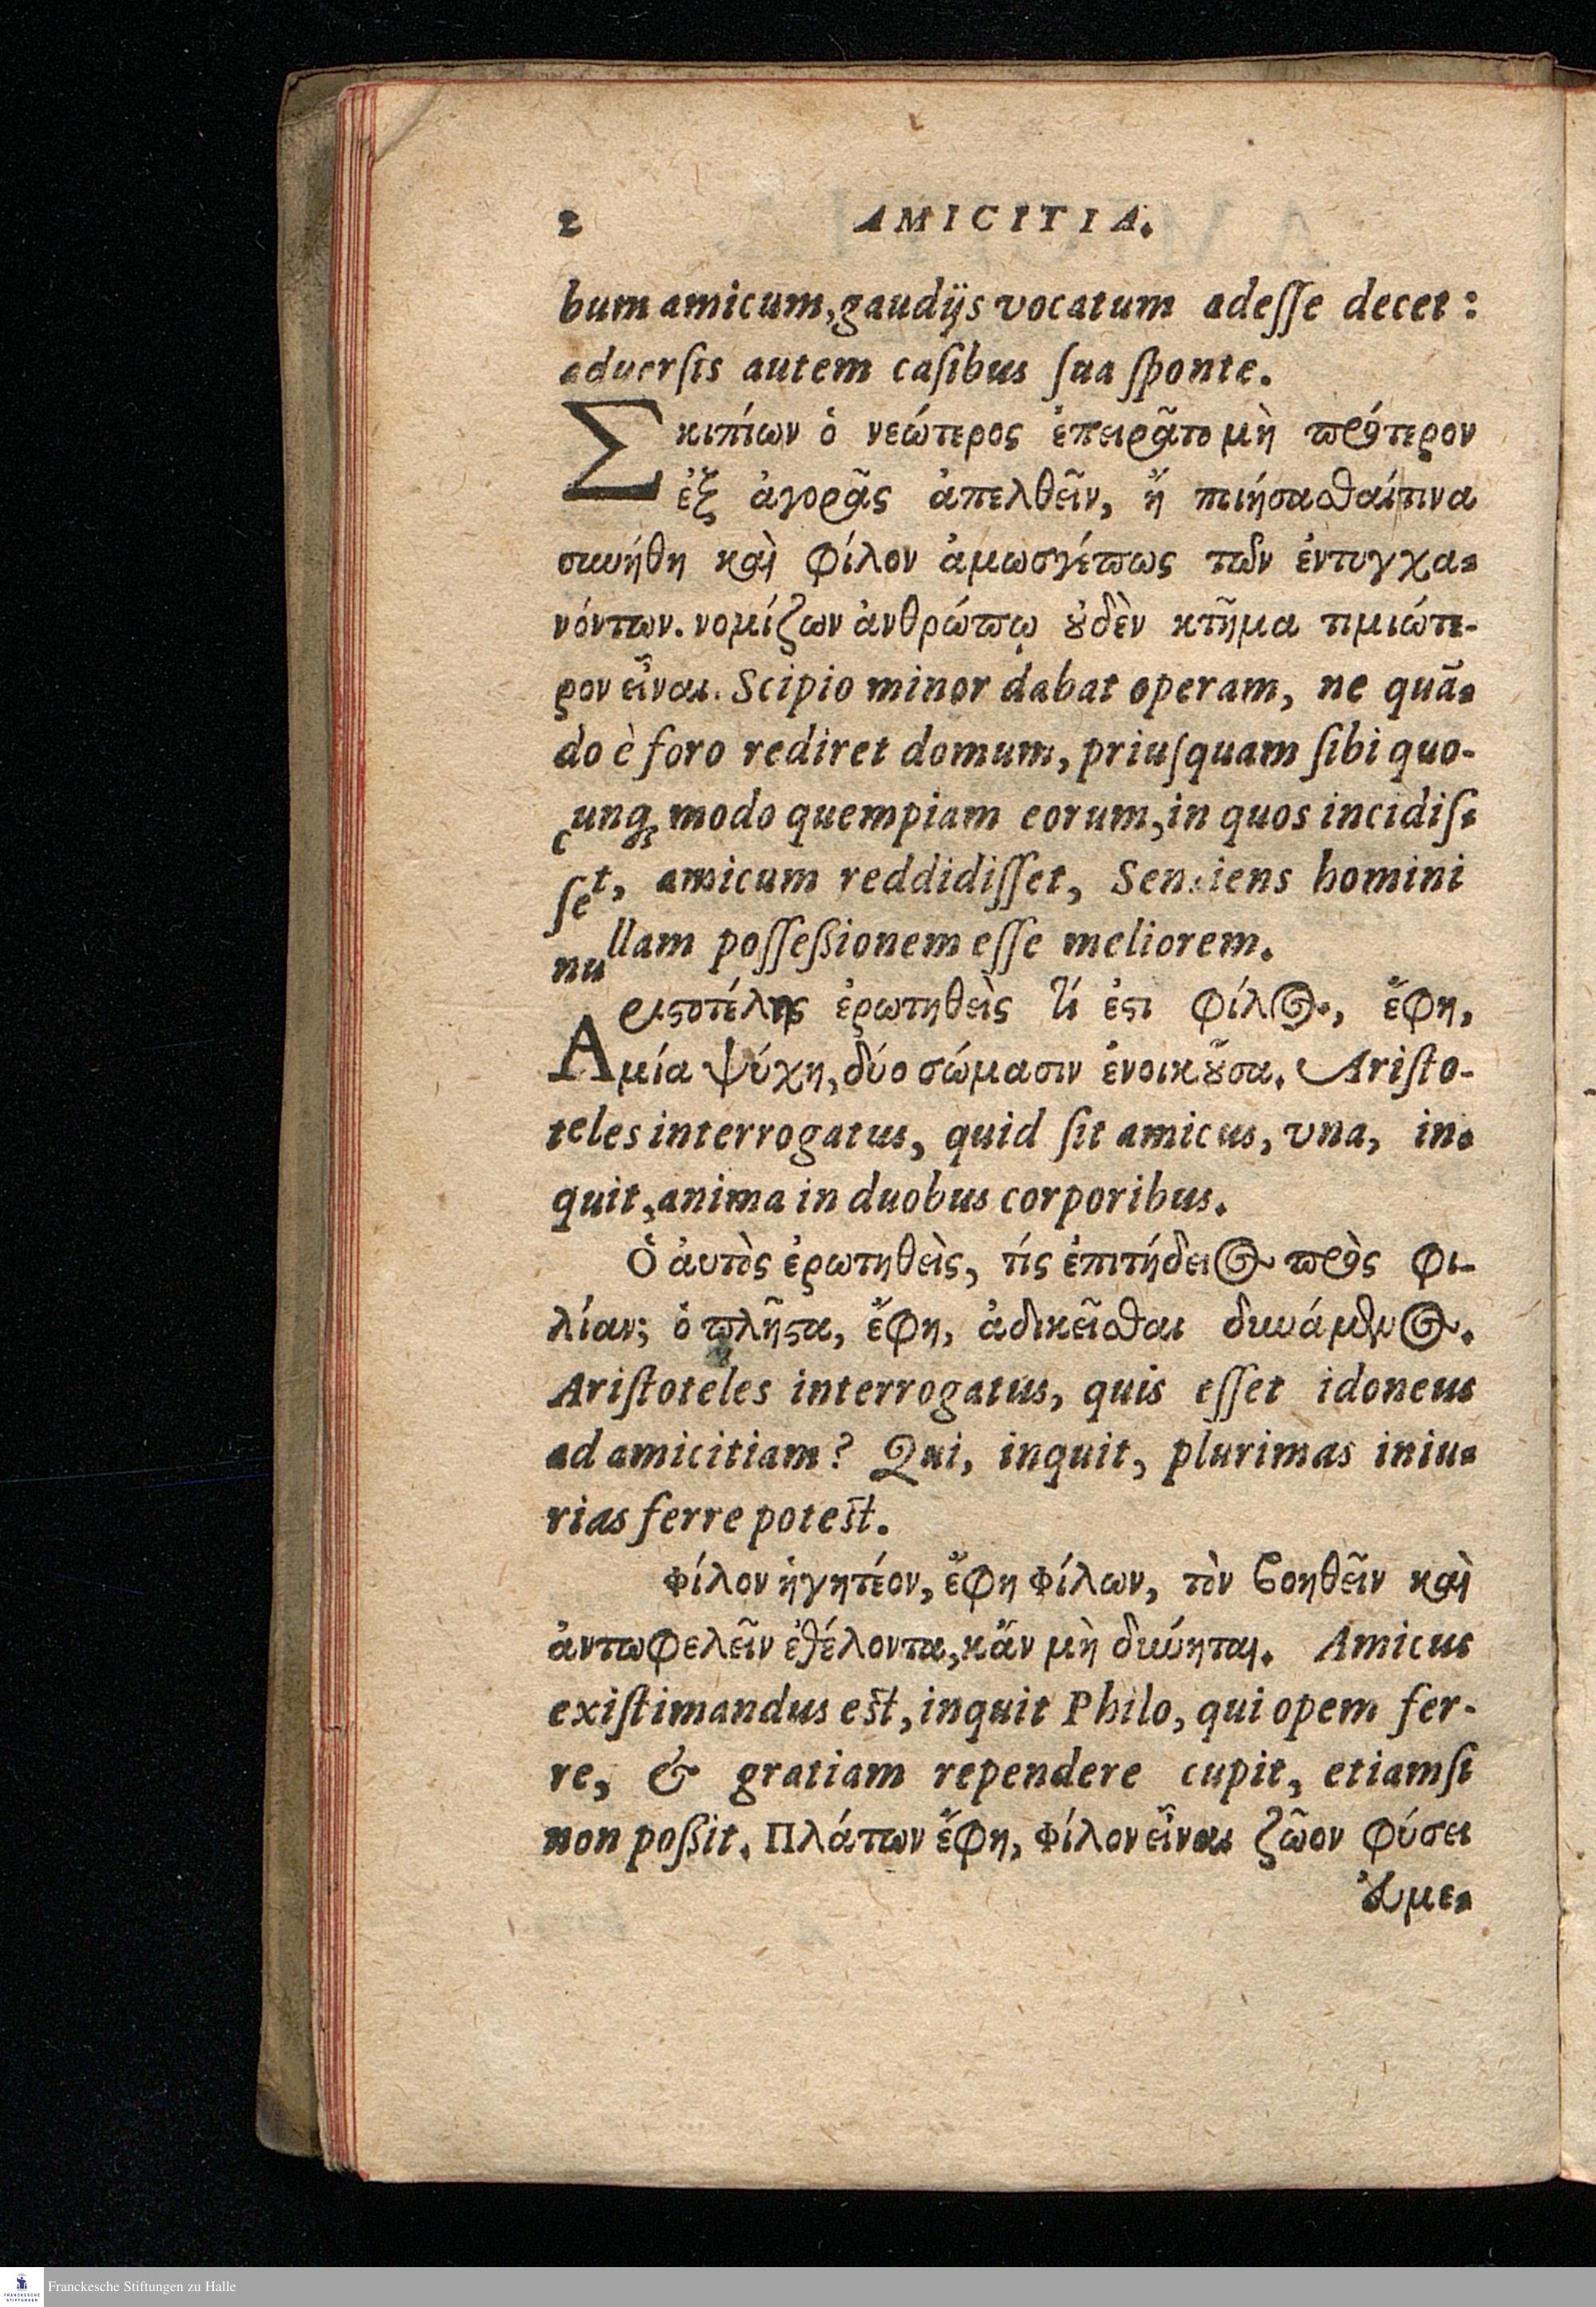 2 AMICITIA.
bum amicum, gaudijs vocatum adeſſe decet:
aduerſis autem caſibus ſua ſponte.
Σκιπίων ὁ νεώτερος ἐπειρᾶτο μὴ πρότερον
ἐξ ἀγορᾶς ἀπελθεῖν, ἢ ποιήσασθαί τινα
συνήθη καὶ φίλον ἀμωσγέπως τῶν ἐντυγχα-
νόντων. νομίζων ἀνθρώπῳ ȣ̓δὲν κτῆμα τιμιώτε-
ρον εἶναι. Scipio minor dabat operam, ne quã-
do è foro rediret domum, priuſquam ſibi quo-
cunq; modo quempiam eorum, in quos incidiſ-
ſet, amicum reddidiſſet, Sentiens homini
nullam poſſeßionem eſſe meliorem.
Αριϛοτέλης ἐρωτηθεὶς τί ἐϛι φίλος, ἔφη,
μία ψύχη, δύο σώμασιν ἐνοικȣ͂σα. Ariſto-
teles interrogatus, quid ſit amicus, vna, in-
quit, anima in duobus corporibus.
Ὁ ἀυτὸς ἐρωτηθεὶς, τίς ἐπιτήδειος πρὸς φι-
λίαν; ὁ πλῆϛα, ἔφη, ἀδικεῖσθαι δυνάμενος.
Ariſtoteles interrogatus, quis eſſet idoneus
ad amicitiam? Qui, inquit, plurimas iniu-
rias ferre poteſt.
Φίλον ἡγητέον, ἔφη Φίλων, τὸν βοηθεῖν καὶ
ἀντωφελεῖν ἐθέλοντα, κἄν μὴ δυνήται. Amicus
exiſtimandus eſt, inquit Philo, qui opem fer-
re, & gratiam rependere cupit, etiamſi
non poßit. Πλάτων ἔφη, Φίλον εἶναι ζῶον φύσει
ἐυμε-
Franckesche Stiftungen zu Halle